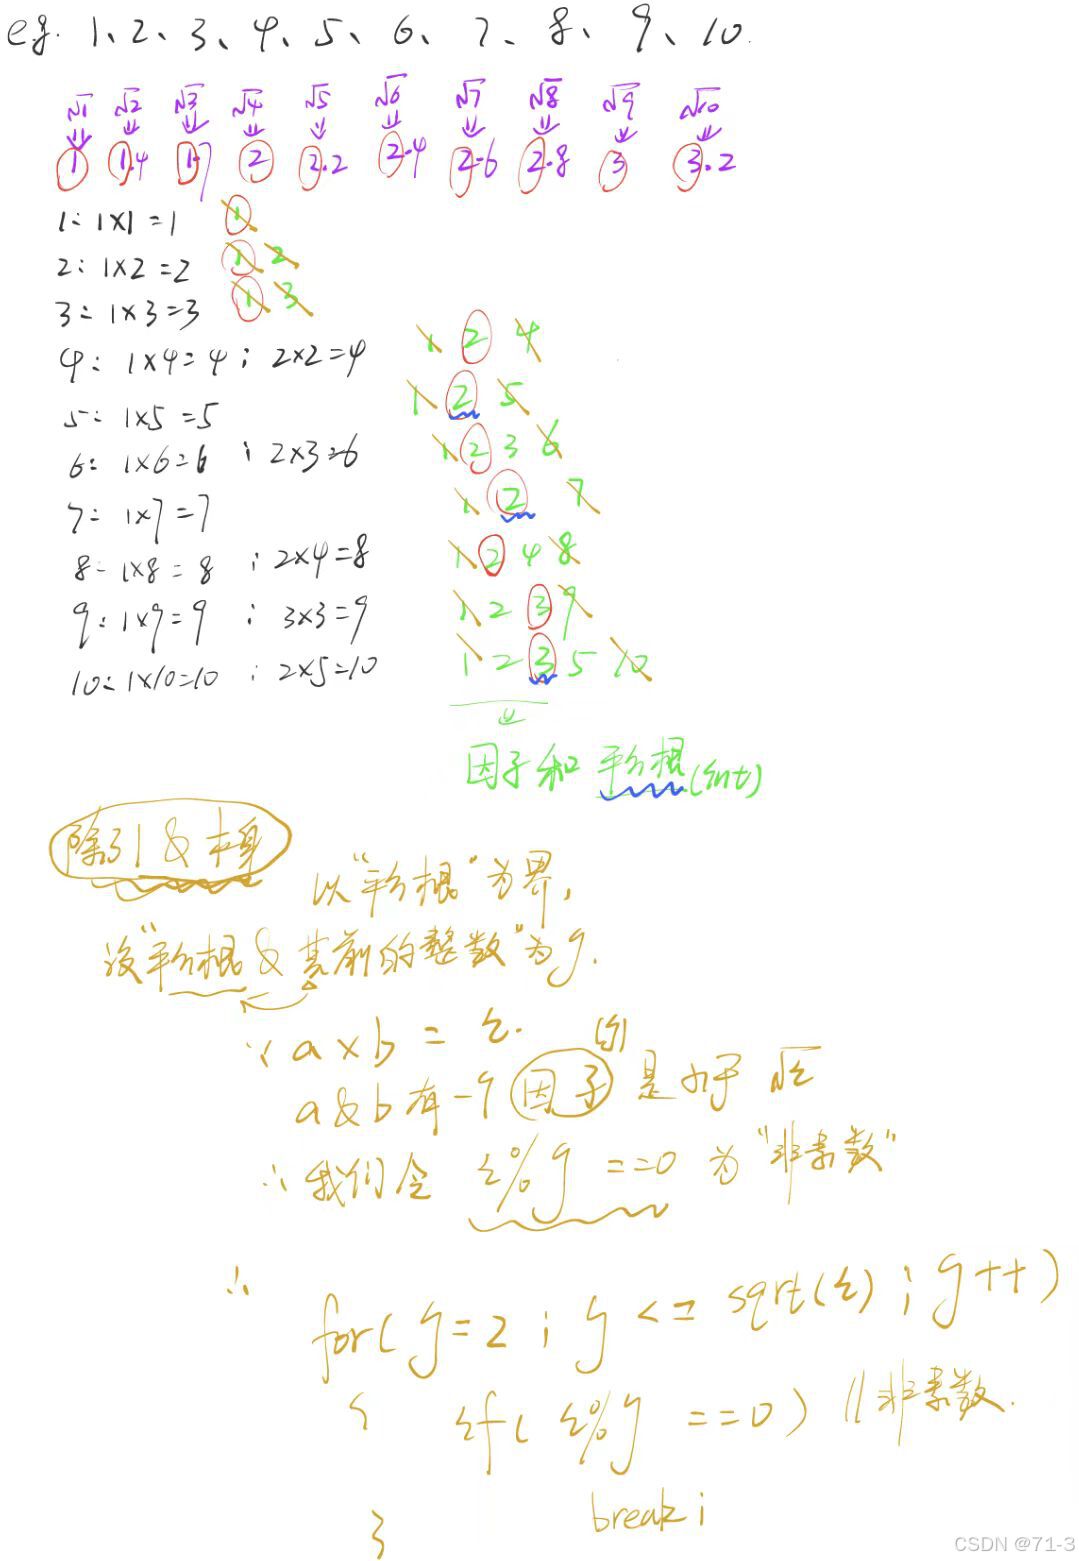 e.g. 1、2、3、4、5、6、7、8、9、10.
√1 √2 √3 √4 √5 √6 √7 √8 √9 √10
1 1.4 1.7 2 2.2 2.4 2.6 2.8 3 3.2
1: 1×1=1 1
2: 1×2=2 1 2
3: 1×3=3 1 3
4: 1×4=4; 2×2=4 1 2 4
5: 1×5=5 1 2 5
6: 1×6=6; 2×3=6 1 2 3 6
7: 1×7=7 1 2 7
8: 1×8=8; 2×4=8 1 2 4 8
9: 1×9=9; 3×3=9 1 2 3 9
10: 1×10=10; 2×5=10 1 2 3 5 10
因子和平方根(int)
除了1&本身
以"平方根"为界,
设"平方根&其前的整数"为j.
∵ a×b = i.
a&b有一个因子是小于√i
∴ 我们令 i%j ==0 为"非素数"
∴
for( j=2; j<=sqrt(i); j++)
{ if( i%j ==0) //非素数.
break;
}
CSDN @71-3